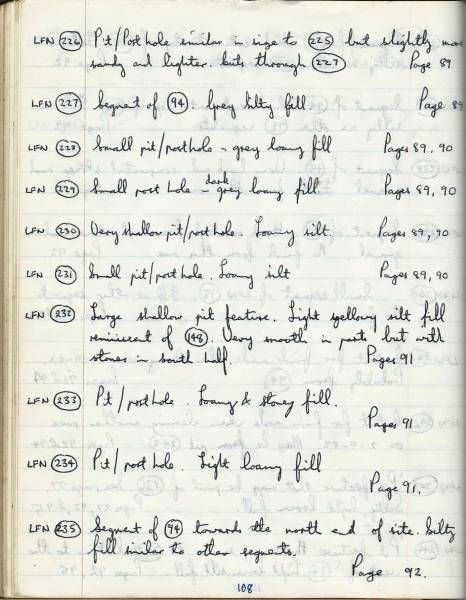 LFN 226 Pit/Post hole similar in size to 225 but slightly more
sandy and lighter. Cuts through 227 Page 89
LFN 227 Segment of 94. Grey Silty fill. Page 89
LFN 228 Small pit/posthole - grey loamy fill Pages 89, 90
LFN 229 Small post hole - dark grey loamy fill. Pages 89, 90
LFN 230 Very shallow pit/post hole. Loamy silt. Pages 89, 90
LFN 231 Small pit/post hole. Loamy silt Pages 89, 90
LFN 232 Large shallow pit feature. Light yellowy silt fill
reminiscent of 148. Very smooth in parts but with
stones in south half. Pages 91
LFN 233 Pit/post hole. Loamy & stoney fill.
Pages 91
LFN 234 Pit/post hole. Light loamy fill
Page 91.
LFN 235 Segment of 94 towards the north end of site. Silty
fill similar to other segments.
Page 92.
108